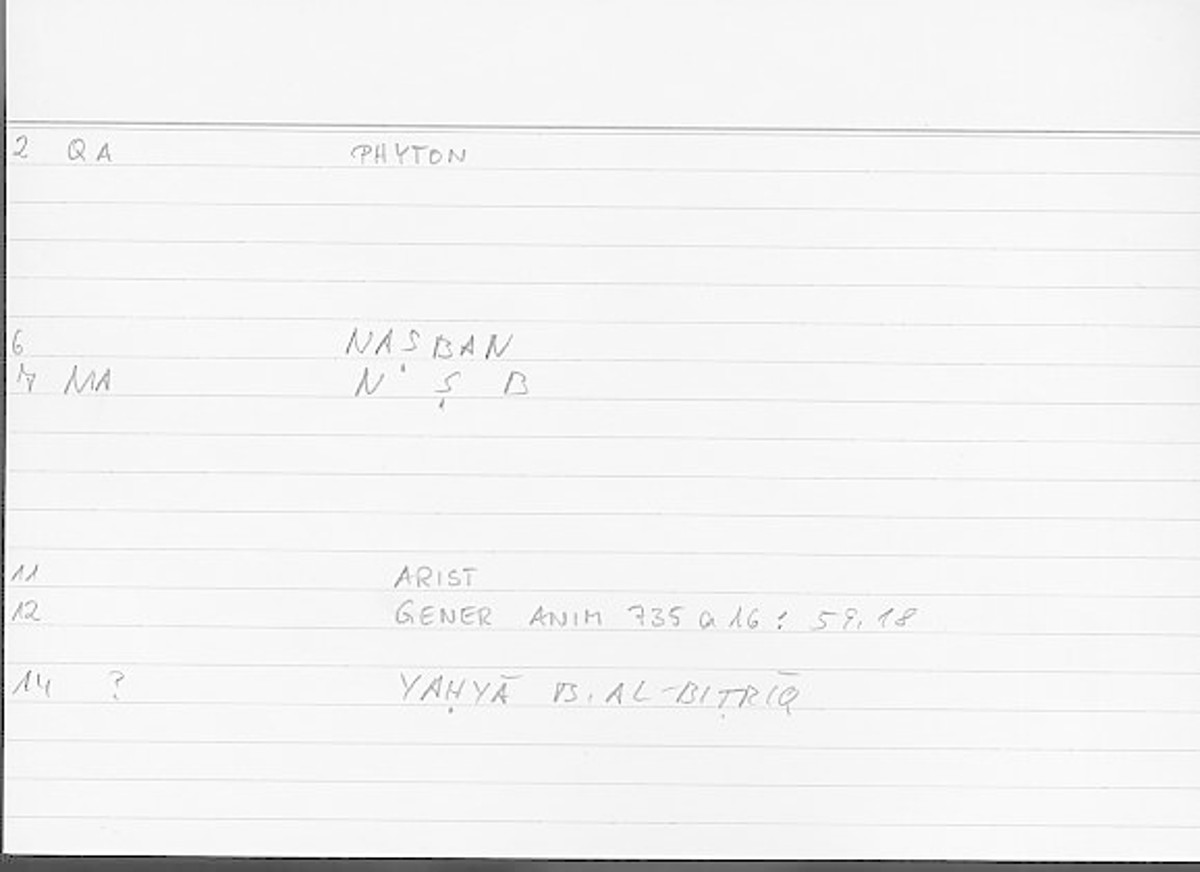 2 QA PHYTON
6 NAṢBAN
7 MA N Ṣ B
11 ARIST
12 GENER ANIM 735 a 16 : 59,18
14 ? YAḤYĀ B. AL-BIṬRĪQ